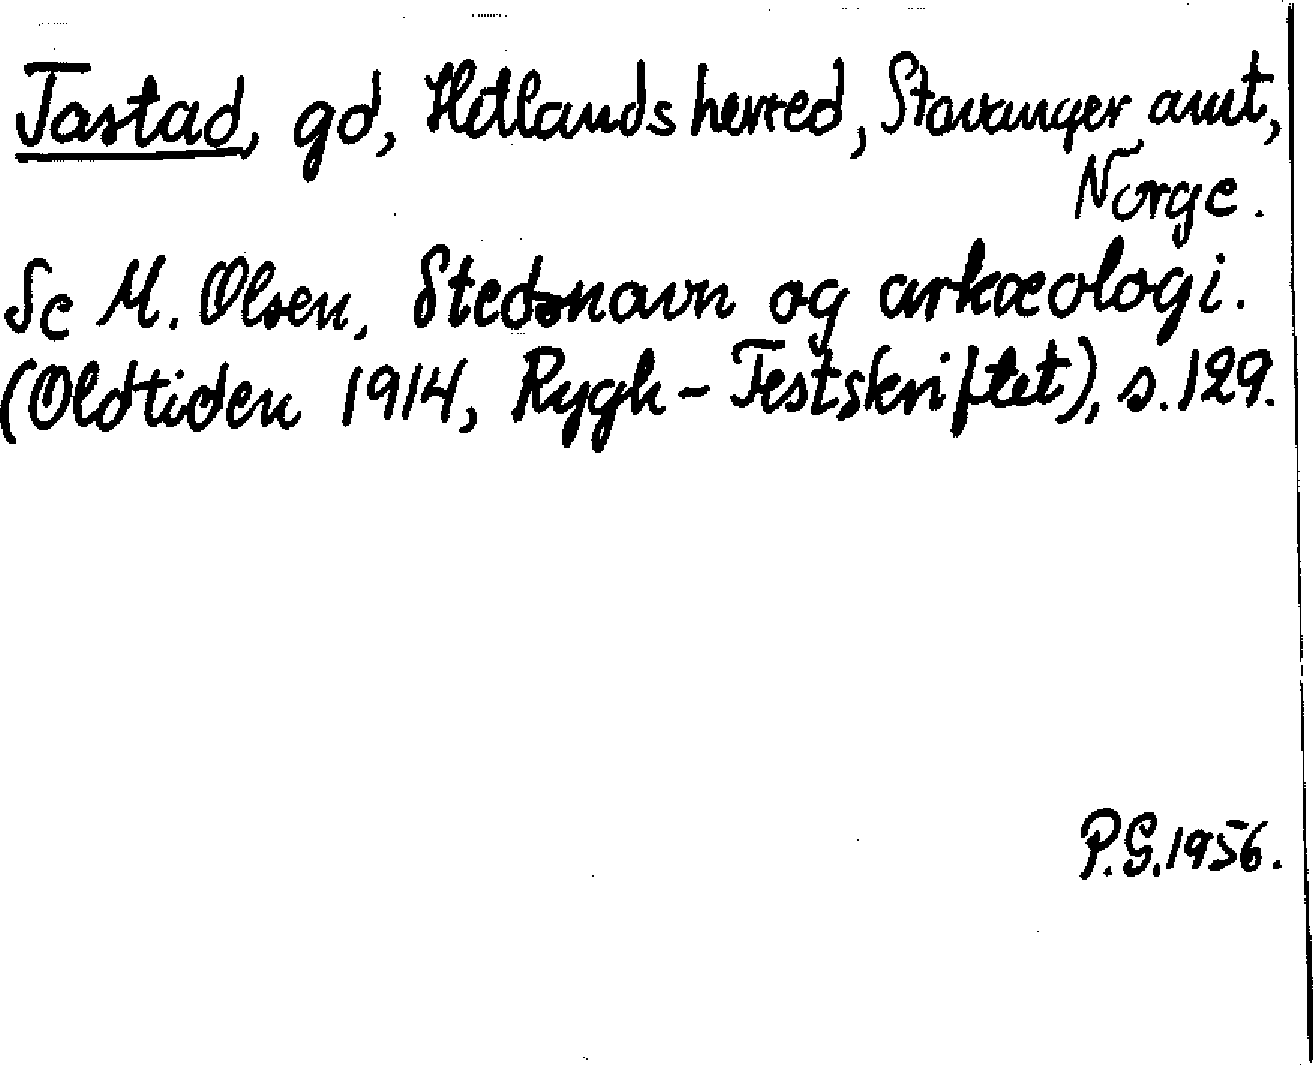 Tastad, gd, Hetlands herred, Stavanger amt,
Norge.
Se M. Olsen, Stedsnavn og arkæologi.
(Oldtiden 1914, Rygh-Festskriftet), s. 129.
P.G. 1956.